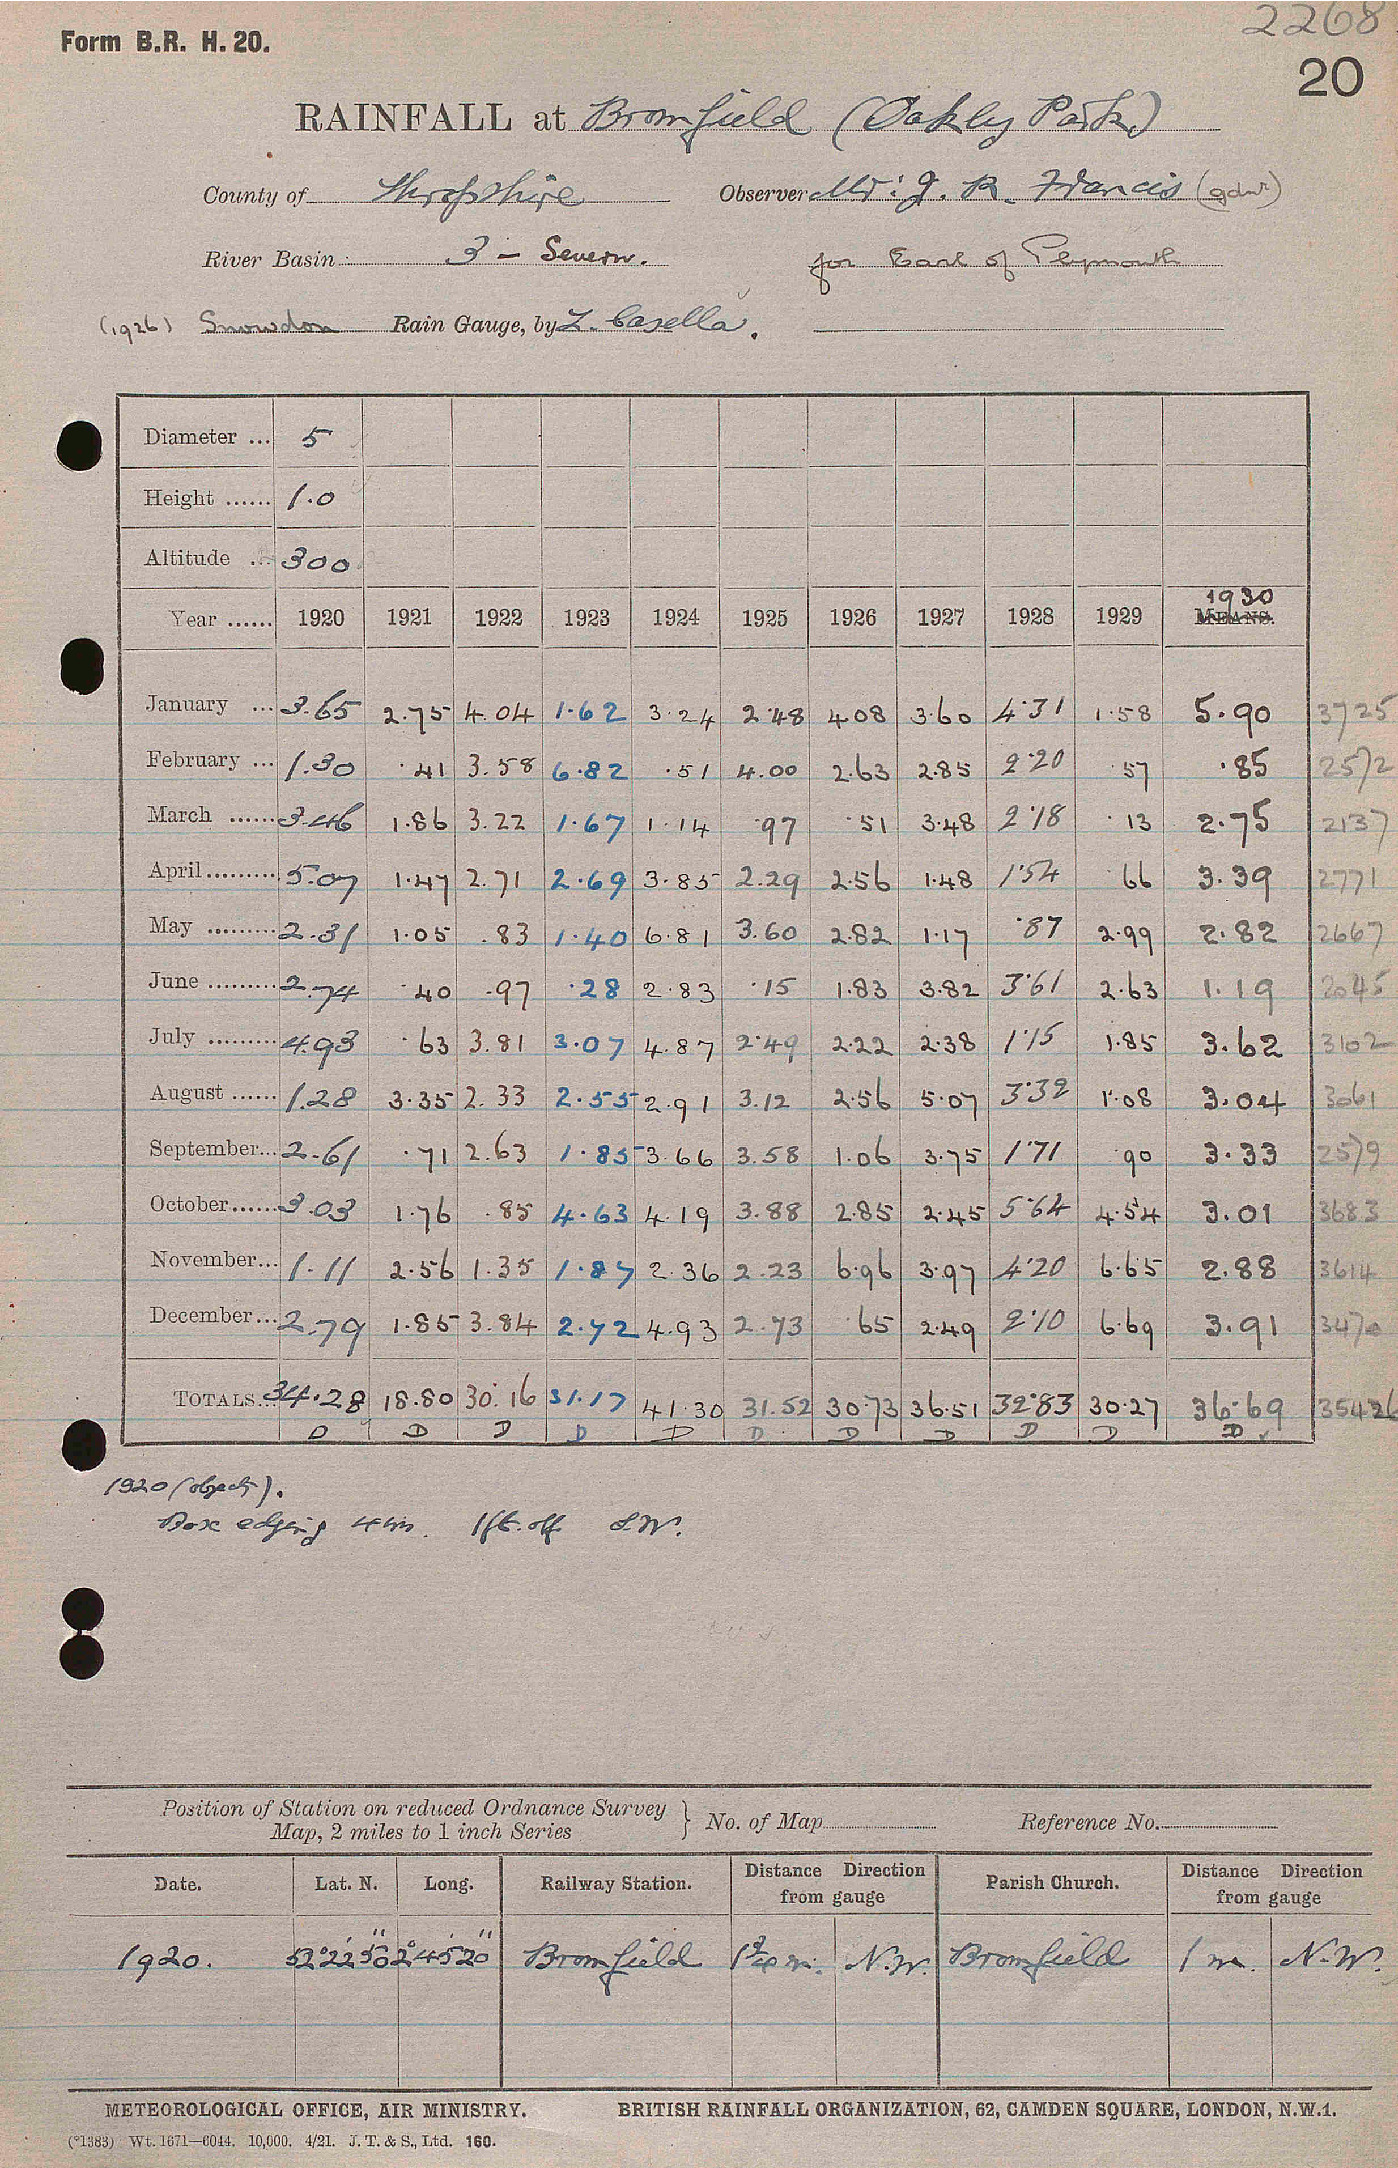 2268
Form B.R. H. 20.
20
RAINFALL at Bromfield (Oakly Park)
County of Shropshire Observer Mr: J. R. Francis (gdnr)
River Basin 3 – Severn. for Earl of Plymouth
(1926) Snowdon Rain Gauge, by L. Casella.
Diameter ... 5
Height ...... 1.0
Altitude ... 300
1930
Year ...... 1920 1921 1922 1923 1924 1925 1926 1927 1928 1929 MEANS.
January ... 3.65 2.75 4.04 1.62 3.24 2.48 4.08 3.60 4.31 1.58 5.90 3725
February ... 1.30 .41 3.58 6.82 .51 4.00 2.63 2.85 2.20 .57 .85 2572
March ...... 3.46 1.86 3.22 1.67 1.14 .97 .51 3.48 2.18 .13 2.75 2137
April ......... 5.07 1.47 2.71 2.69 3.85 2.29 2.56 1.48 1.54 .66 3.39 2771
May ......... 2.31 1.05 .83 1.40 6.81 3.60 2.82 1.17 .87 2.99 2.82 2667
June ......... 2.74 .40 .97 .28 2.83 .15 1.83 3.82 3.61 2.63 1.19 2045
July ......... 4.93 .63 3.81 3.07 4.87 2.49 2.22 2.38 1.15 1.85 3.62 3102
August ...... 1.28 3.35 2.33 2.55 2.91 3.12 2.56 5.07 3.32 1.08 3.04 3061
September... 2.61 .71 2.63 1.85 3.66 3.58 1.06 3.75 1.71 .90 3.33 2579
October...... 3.03 1.76 .85 4.63 4.19 3.88 2.85 2.45 5.64 4.54 3.01 3683
November... 1.11 2.56 1.35 1.87 2.36 2.23 6.96 3.97 4.20 6.65 2.88 3614
December... 2.79 1.85 3.84 2.72 4.93 2.73 .65 2.49 2.10 6.69 3.91 3470
TOTALS... 34.28 18.80 30.16 31.17 41.30 31.52 30.73 36.51 32.83 30.27 36.69 35426
D D D D D D D D D D D
1920 (objects).
Box edging 4 in. 1 ft. off S.W.
Position of Station on reduced Ordnance Survey
Map, 2 miles to 1 inch Series } No. of Map Reference No.
Date. Lat. N. Long. Railway Station. Distance Direction from gauge Parish Church. Distance Direction from gauge
1920. 52° 22' 53" 2° 45' 20" Bromfield 1¾ m. N.W. Bromfield 1 m. N.W.
METEOROLOGICAL OFFICE, AIR MINISTRY. BRITISH RAINFALL ORGANIZATION, 62, CAMDEN SQUARE, LONDON, N.W.1.
(*1383) Wt. 1671—6044. 10,000. 4/21. J. T. & S., Ltd. 160.